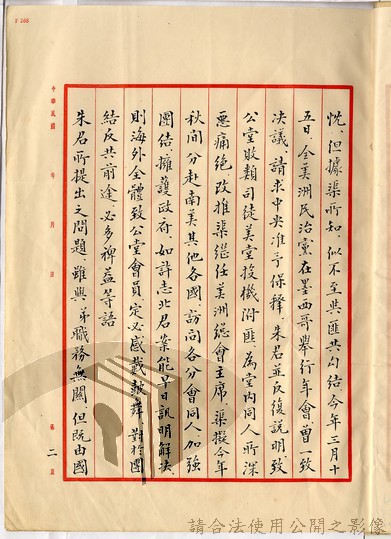 忱，但據渠所知，似不至與匪共勾結今年三月十
五日，全美洲民治黨在墨西哥舉行年會曾一致
决議，請求中央准予保釋，朱君並反復說明致
公堂敗類司徒美堂投機附匪，為堂内同人所深
惡痛絕，改推渠繼任美洲總會主席，渠擬今年
秋間分赴南美其他各國，訪问各分會同人，加強
團结，擁護政府，如許志北君案能早日訊明解决，
則海外全體致公堂會員，定必感戴鼓舞，對於團
結反共前途，必多裨益等語
朱君所提出之問題，雖與弟職務無關，但既由國
中華民國 年 月 日
第 二 頁
請合法使用公開之影像